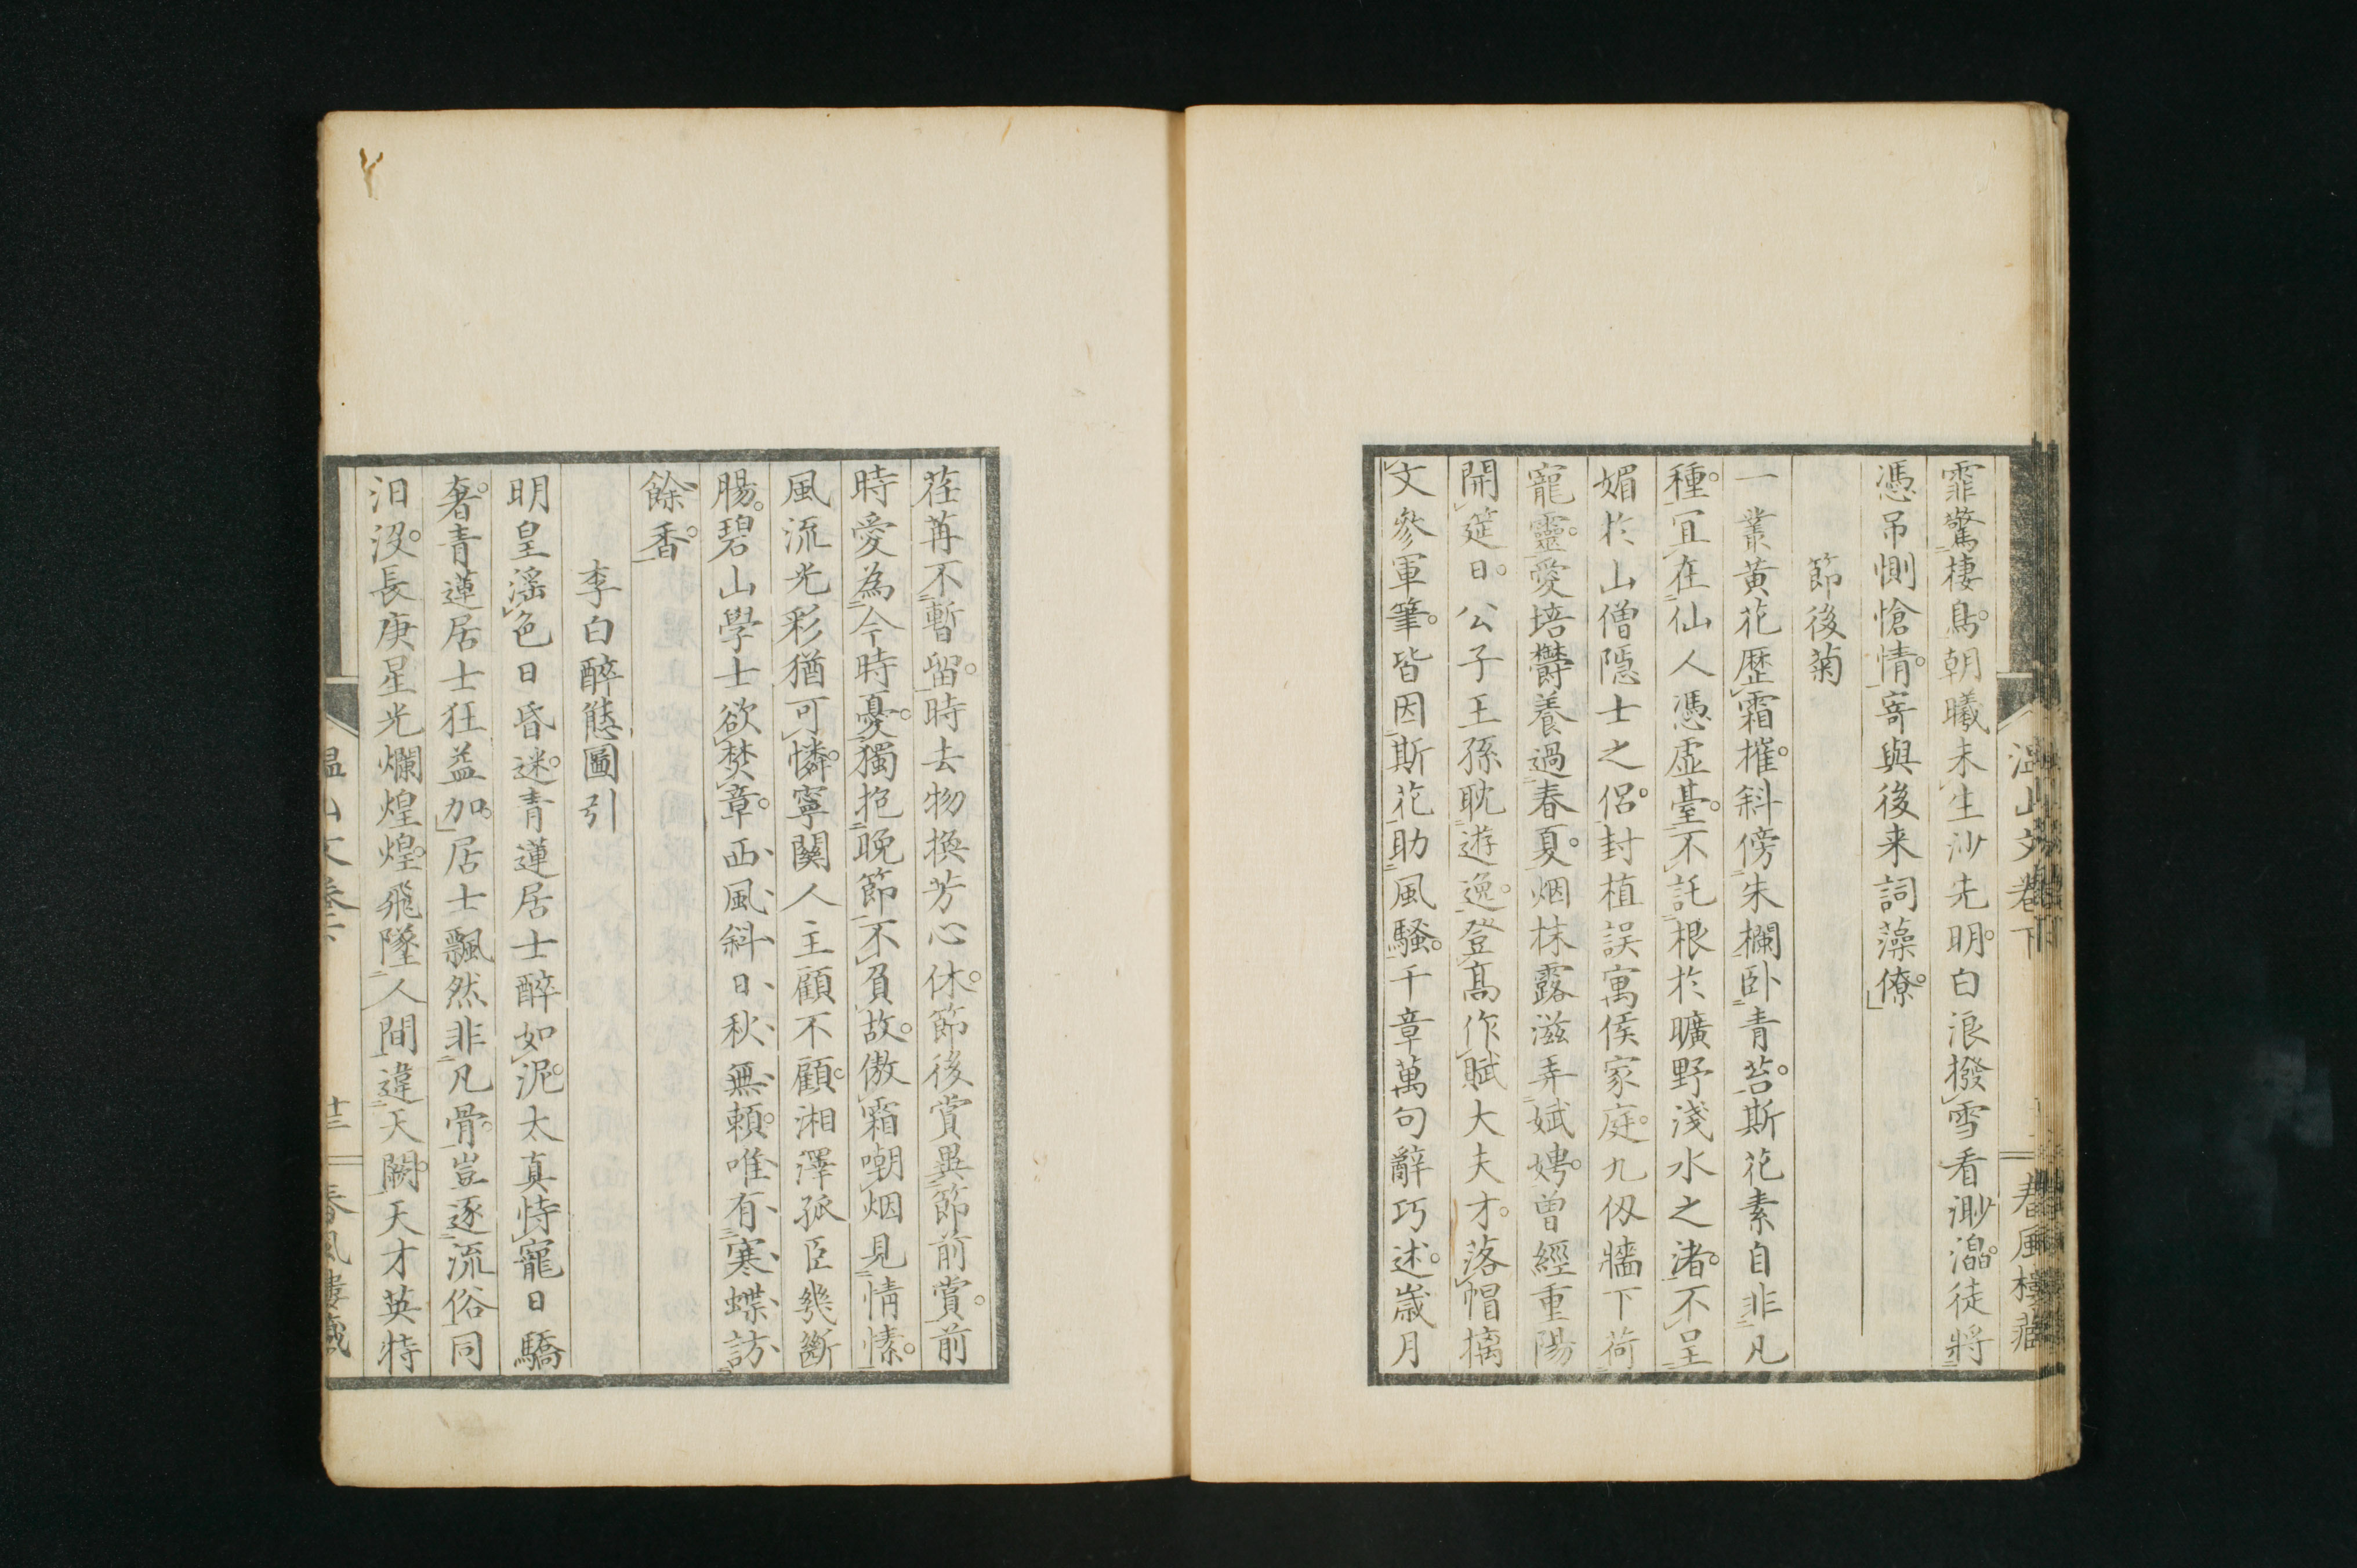 霏驚棲鳥。朝曦未生沙先明。白浪撥雪看渺漍。徒將
憑吊惻愴情。寄與後来詞藻僚。
節後菊
一叢黄花歴霜摧。斜傍朱欄卧青苔。斯花素自非凡
種。宜在仙人憑虚臺。不託根於曠野淺水之渚。不呈
媚於山僧隠士之侶。封植誤寓侯家庭。九仭牆下荷
寵靈。愛培欝養過春夏。烟抹露滋弄斌娉。曽經重陽
開筵日。公子王孫耽遊逸。登髙作賦大夫才。落帽摛
文参軍筆。皆因斯花助風騒。千章萬句辭巧述。歳月
荏苒不暫留。時去物換芳心休。節後賞異節前賞。前
時愛為今時憂。獨抱晩節不負故。傲霜嘲烟見情愫。
風流光彩猶可憐。寧關人主顧不顧。湘澤孤臣幾斷
腸。碧山學士欲焚章。西風斜日秋無頼。唯有寒蝶訪
餘香。
李白醉態圖引
明皇滛色日昏迷。青蓮居士醉如泥。太真恃寵日驕
奢。青蓮居士狂益加。居士飄然非凡骨。豈逐流俗同
汨没。長庚星光爛煌煌。飛墜人間違天闕。天才英特
温山文卷下
十三
春風樓藏